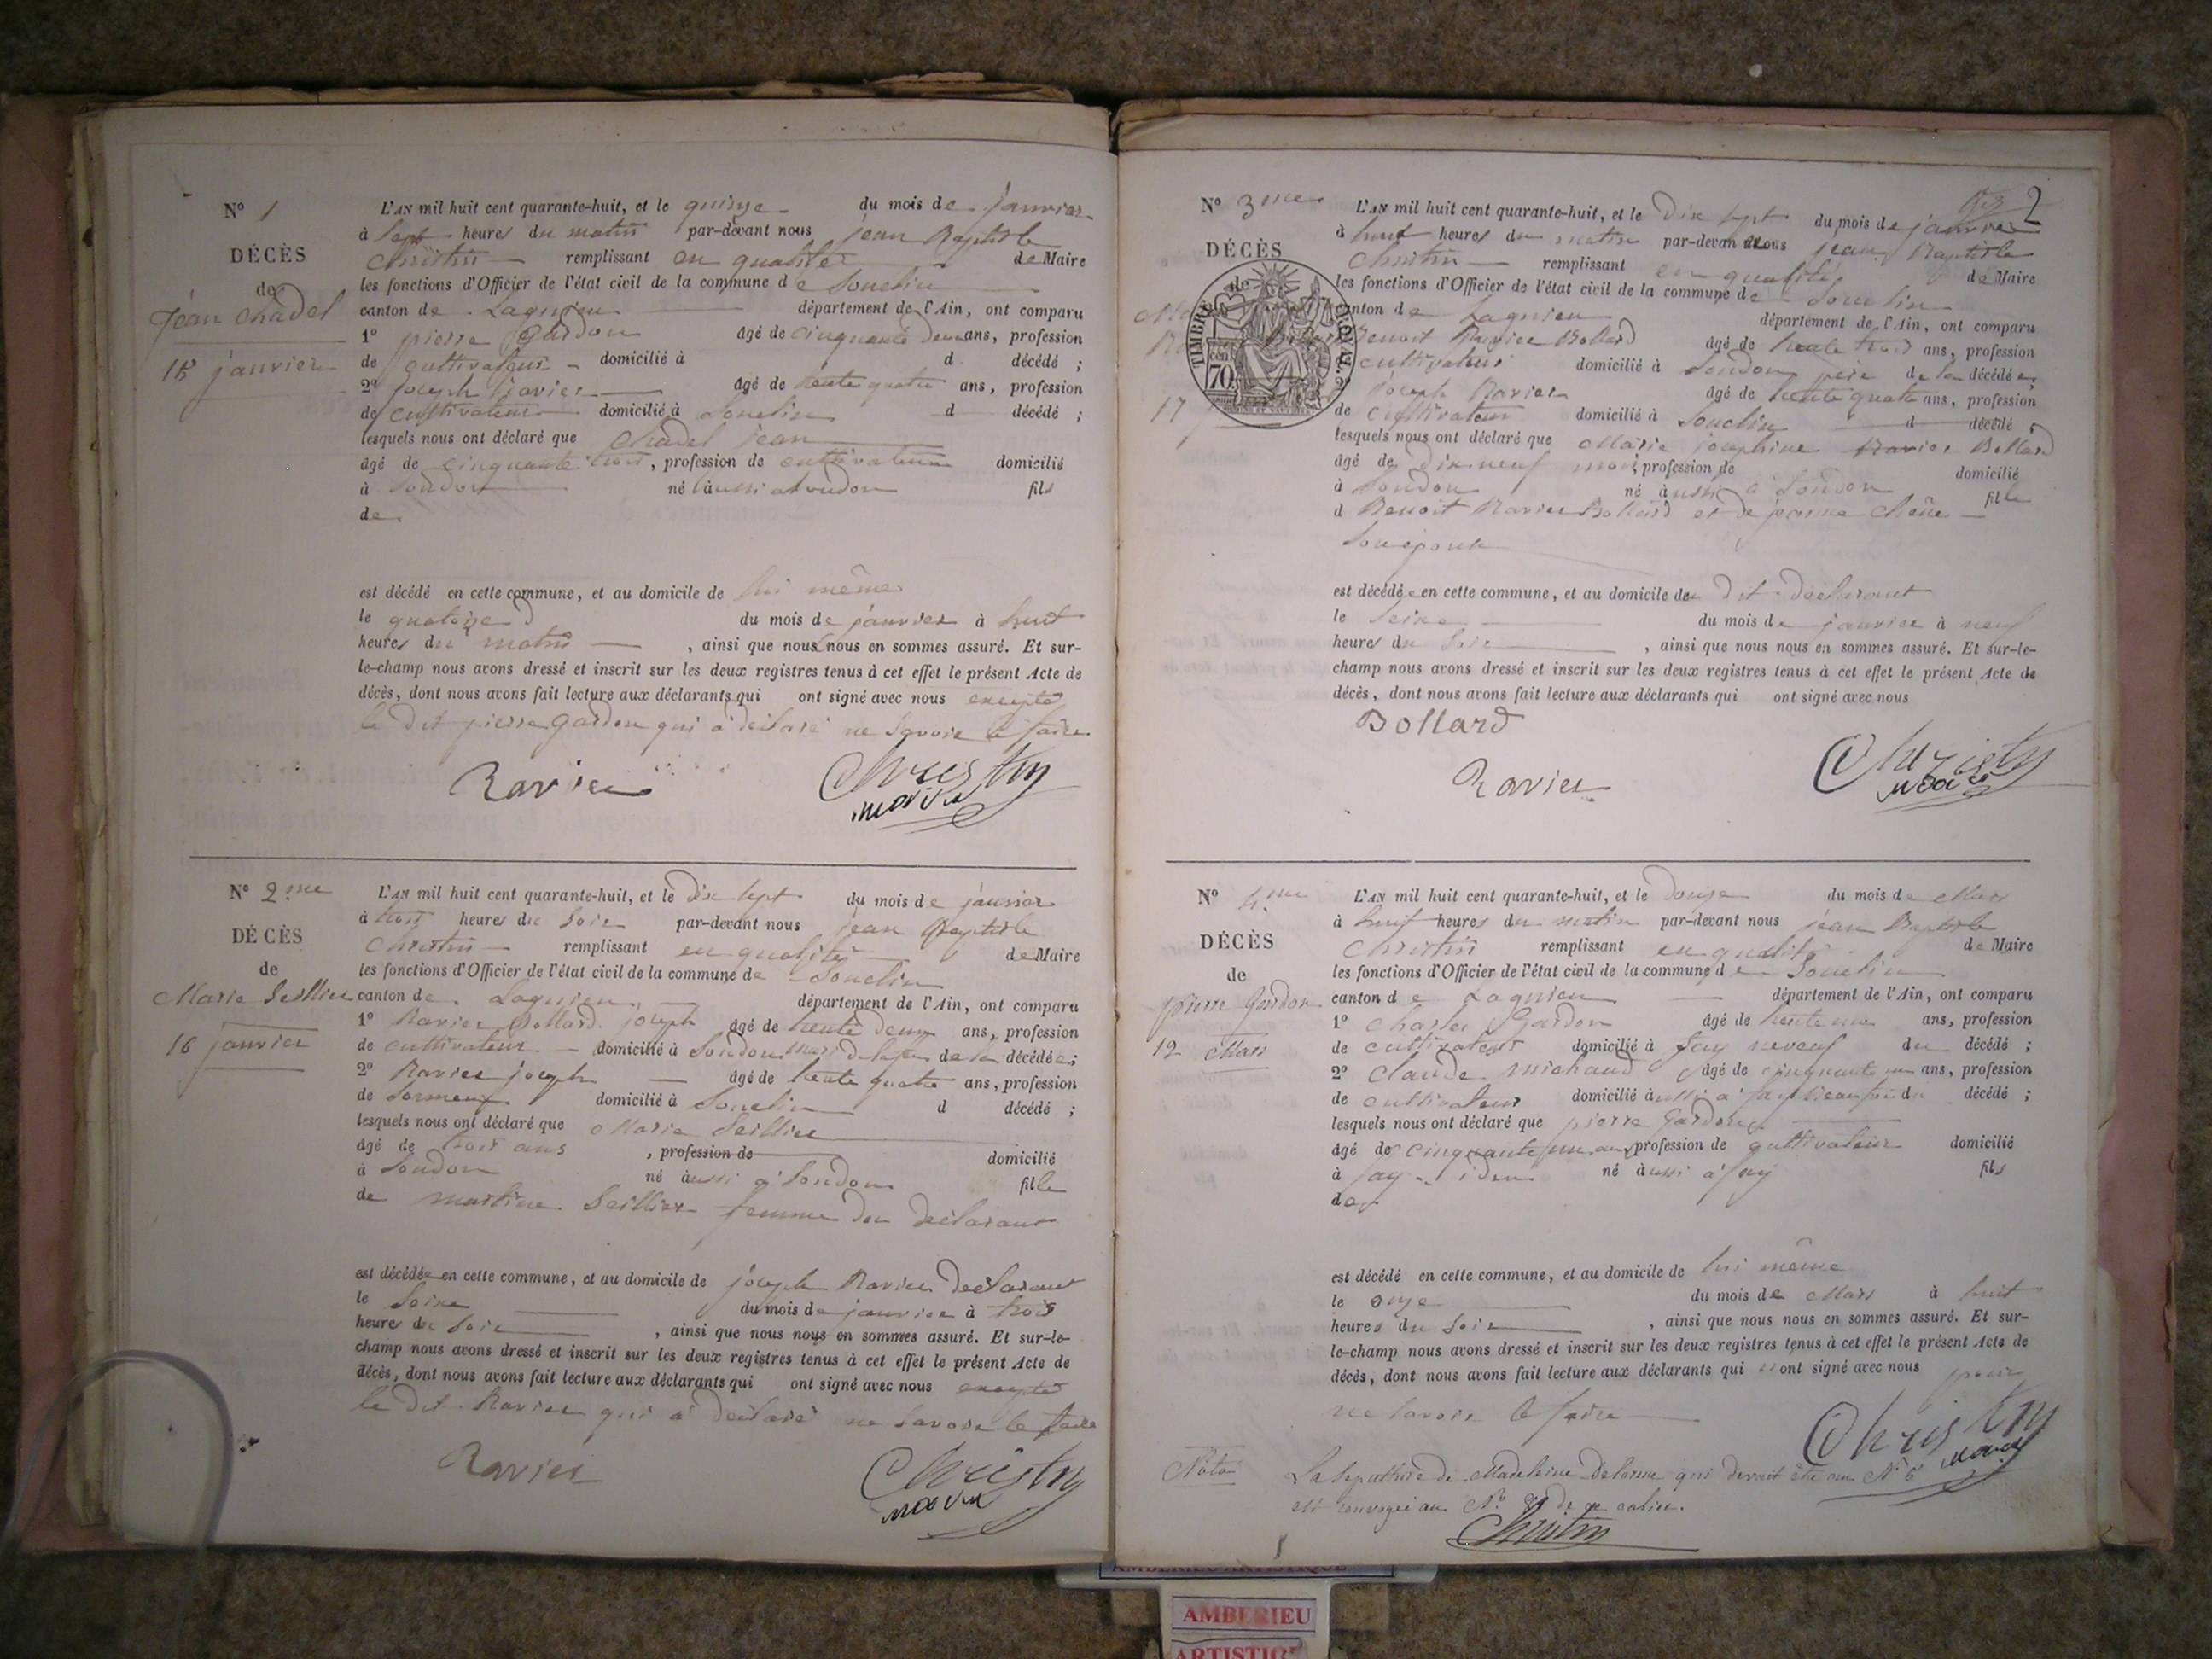 Nº 1
DÉCÈS
de
Jean Chadel
15 janvier
L'AN mil huit cent quarante-huit, et le quinze du mois de janvier
à Sept heures du matin par-devant nous jean Baptiste
Christin remplissant en qualité de Maire
les fonctions d'Officier de l'état civil de la commune de Souclin
canton de Lagnieu département de l'Ain, ont comparu
1º pierre Gardon âgé de cinquante deux ans, profession
de cultivateur domicilié à d décédé ;
2º joseph Ravier âgé de trente quatre ans, profession
de cultivateur domicilié à Souclin d décédé ;
lesquels nous ont déclaré que Chadel jean
âgé de cinquante trois, profession de cultivateur domicilié
à Soudon né àussi a Soudon fils
de
est décédé en cette commune, et au domicile de lui même
le quatorze du mois de janvier à huit
heures du matin , ainsi que nous nous en sommes assuré. Et sur-
le-champ nous avons dressé et inscrit sur les deux registres tenus à cet effet le présent Acte de
décès, dont nous avons fait lecture aux déclarants qui ont signé avec nous excepté
le dit pierre gardon qui a déclaré ne Savoir le faire
Ravier Christin
maire
Nº 2me
DÉCÈS
de
Marie Seillier
16 janvier
L'AN mil huit cent quarante-huit, et le dix sept du mois de janvier
à trois heures du Soir par-devant nous jean Baptiste
Christin remplissant en qualité de Maire
les fonctions d'Officier de l'état civil de la commune de Souclin
canton de Lagnieu département de l'Ain, ont comparu
1º Ravier Bollard joseph âgé de trente deux ans, profession
de cultivateur domicilié à Soudon de la décédée ;
2º Ravier joseph âgé de trente quatre ans, profession
de domicilié à Souclin d décédé ;
lesquels nous ont déclaré que Marie Seillier
âgé de trois ans , profession de domicilié
à Soudon né àussi a Soudon fille
de martine Seillier femme du declarant
est décédée en cette commune, et au domicile de joseph Ravier declarant
le Seize du mois de janvier à trois
heures du Soir , ainsi que nous nous en sommes assuré. Et sur-le-
champ nous avons dressé et inscrit sur les deux registres tenus à cet effet le présent Acte de
décès, dont nous avons fait lecture aux déclarants qui ont signé avec nous excepté
le dit Ravier qui a déclaré ne Savoir le faire
Ravier Christin
maire
Nº 3me
DÉCÈS
de
17
TIMBRE ROYAL
70
2
L'AN mil huit cent quarante-huit, et le Dix sept du mois de janvier
à huit heures du matin par-devant nous jean Baptiste
Christin remplissant en qualité de Maire
les fonctions d'Officier de l'état civil de la commune de Souclin
canton de Lagnieu département de l'Ain, ont comparu
Benoit Ravier Bollard âgé de trente trois ans, profession
cultivateur domicilié à Soudon père de la décédée ;
joseph Ravier âgé de trente quatre ans, profession
de cultivateur domicilié à Souclin d décédé ;
lesquels nous ont déclaré que Marie josephine Ravier Bollard
âgé de dix neuf mois, profession de domicilié
à Soudon né àussi a Soudon fille
d Benoit Ravier Bollard et de jeanne Chêne
Son epouse
est décédée en cette commune, et au domicile de dit declarant
le Seize du mois de janvier à neuf
heures du Soir , ainsi que nous nous en sommes assuré. Et sur-le-
champ nous avons dressé et inscrit sur les deux registres tenus à cet effet le présent Acte de
décès, dont nous avons fait lecture aux déclarants qui ont signé avec nous
Bollard
Ravier Christin
maire
Nº 4me
DÉCÈS
de
pierre Gardon
12 Mars
L'AN mil huit cent quarante-huit, et le douze du mois de Mars
à huit heures du matin par-devant nous jean Baptiste
Christin remplissant en qualité de Maire
les fonctions d'Officier de l'état civil de la commune de Souclin
canton de Lagnieu département de l'Ain, ont comparu
1º Charles Gardon âgé de trente un ans, profession
de cultivateur domicilié à fay neveuf du décédé ;
2º Claude michaud âgé de cinquante un ans, profession
de cultivateur domicilié àussi a fay Beaufrè du décédé ;
lesquels nous ont déclaré que pierre Gardon
âgé de cinquante un ans, profession de cultivateur domicilié
à fay idem né àussi a fay fils
de
est décédé en cette commune, et au domicile de lui même
le onze du mois de Mars à huit
heures du Soir , ainsi que nous nous en sommes assuré. Et sur-
le-champ nous avons dressé et inscrit sur les deux registres tenus à cet effet le présent Acte de
décès, dont nous avons fait lecture aux déclarants qui ont signé avec nous pour
ne Savoir le faire
Christin
maire
Nota La Sepulture de Madeleine Delorme qui devrait être au Nº 6
est renvoyée au Nº 8 de ce cahier.
Christin
AMBERIEU ARTISTIQUE
AMBERIEU
ARTISTIQUE